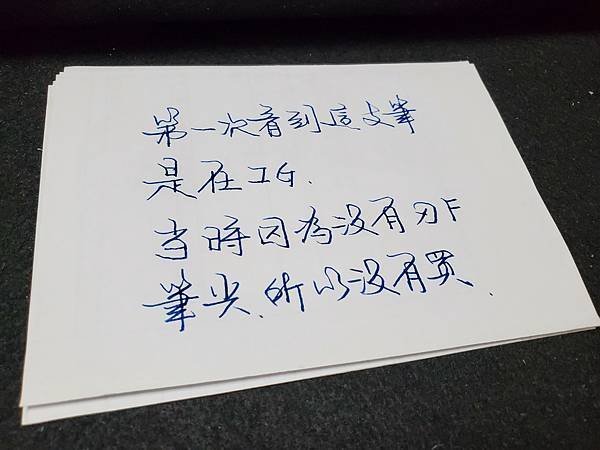 第一次看到這支筆
是在IG.
当時因為沒有刃F
筆尖、所以沒有買.